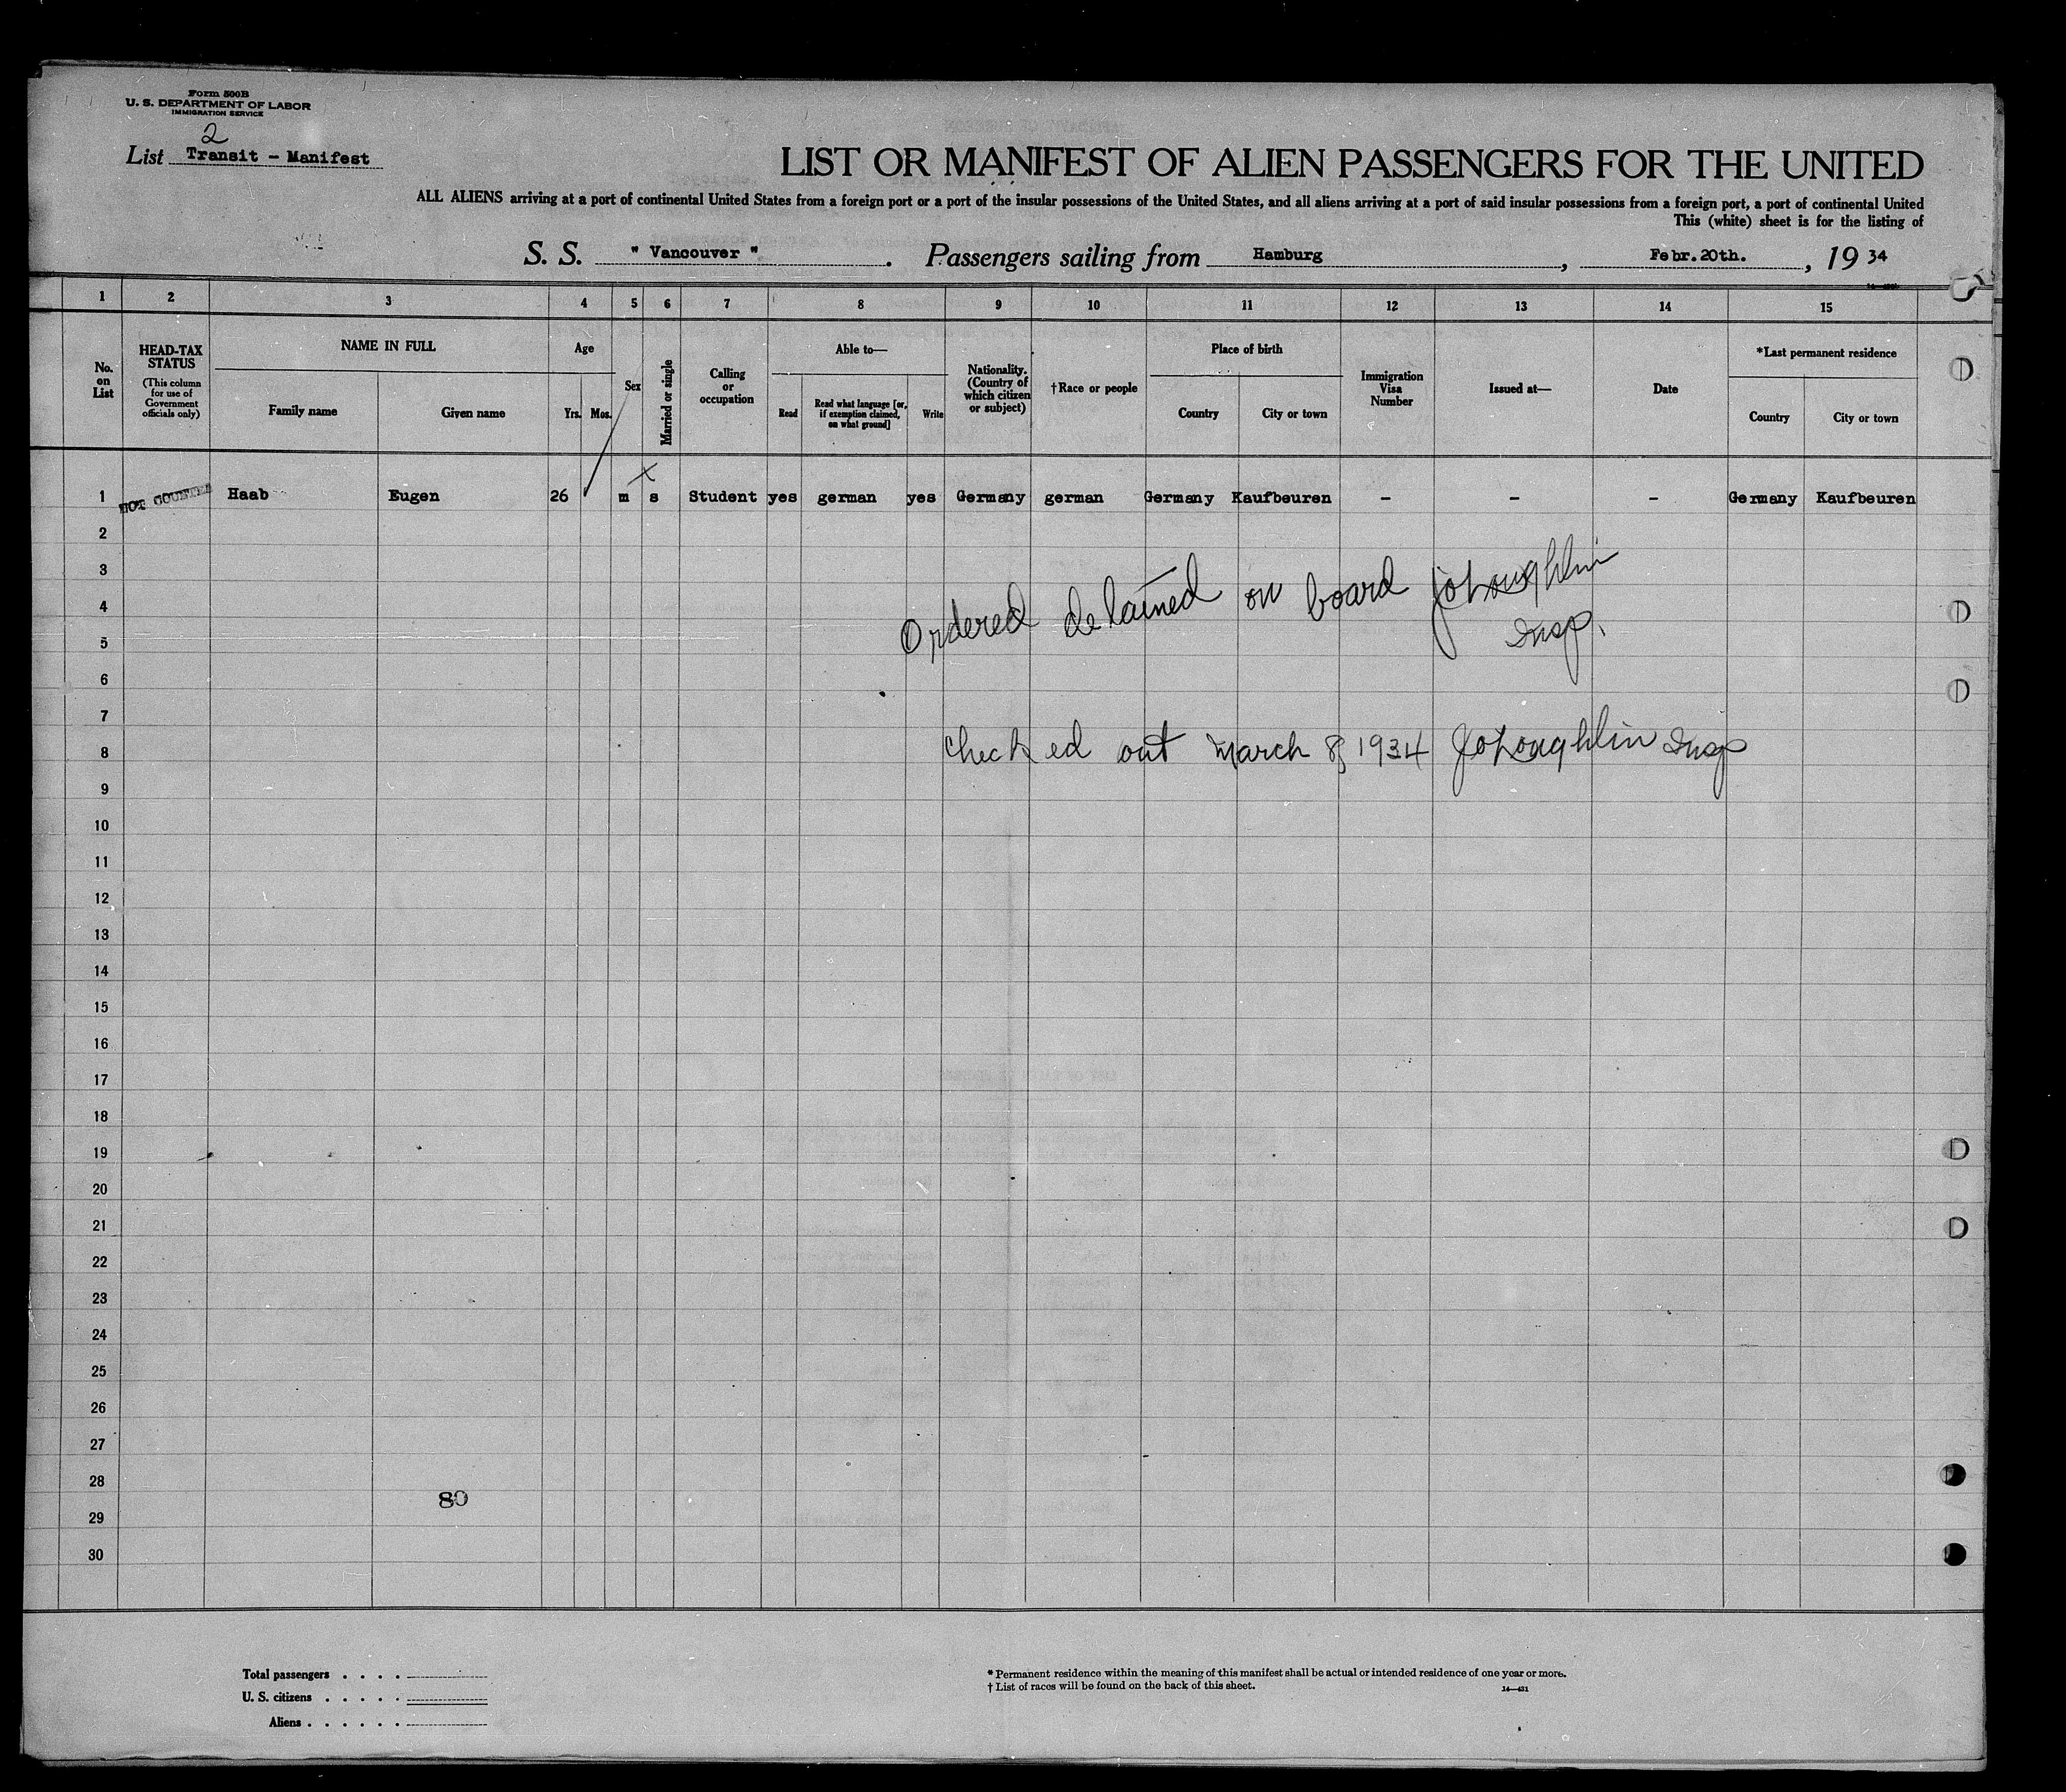 Form 500B
U. S. DEPARTMENT OF LABOR
IMMIGRATION SERVICE
2
List Transit - Manifest
LIST OR MANIFEST OF ALIEN PASSENGERS FOR THE UNITED
ALL ALIENS arriving at a port of continental United States from a foreign port or a port of the insular possessions of the United States, and all aliens arriving at a port of said insular possessions from a foreign port, a port of continental United
This (white) sheet is for the listing of
S. S. " Vancouver ". Passengers sailing from Hamburg, Febr.20th., 1934
1 2 3 4 5 6 7 8 9 10 11 12 13 14 15
No. on List
HEAD-TAX STATUS
(This column for use of Government officials only)
NAME IN FULL
Family name Given name
Age
Yrs. Mos.
Sex
Married or single
Calling or occupation
Able to—
Read
Read what language [or, if exemption claimed, on what ground]
Write
Nationality. (Country of which citizen or subject)
†Race or people
Place of birth
Country City or town
Immigration Visa Number
Issued at—
Date
*Last permanent residence
Country City or town
1 NOT COUNTED Haab Eugen 26 m s Student yes german yes Germany german Germany Kaufbeuren - - - Germany Kaufbeuren
2
3
4
Ordered detained on board JoLoughlin
5
Insp.
6
7
8 checked out March 8, 1934 JoLoughlin Insp
9
10
11
12
13
14
15
16
17
18
19
20
21
22
23
24
25
26
27
28
80
29
30
Total passengers . . . .
U. S. citizens . . . . .
Aliens . . . . . .
* Permanent residence within the meaning of this manifest shall be actual or intended residence of one year or more.
† List of races will be found on the back of this sheet.
14—431